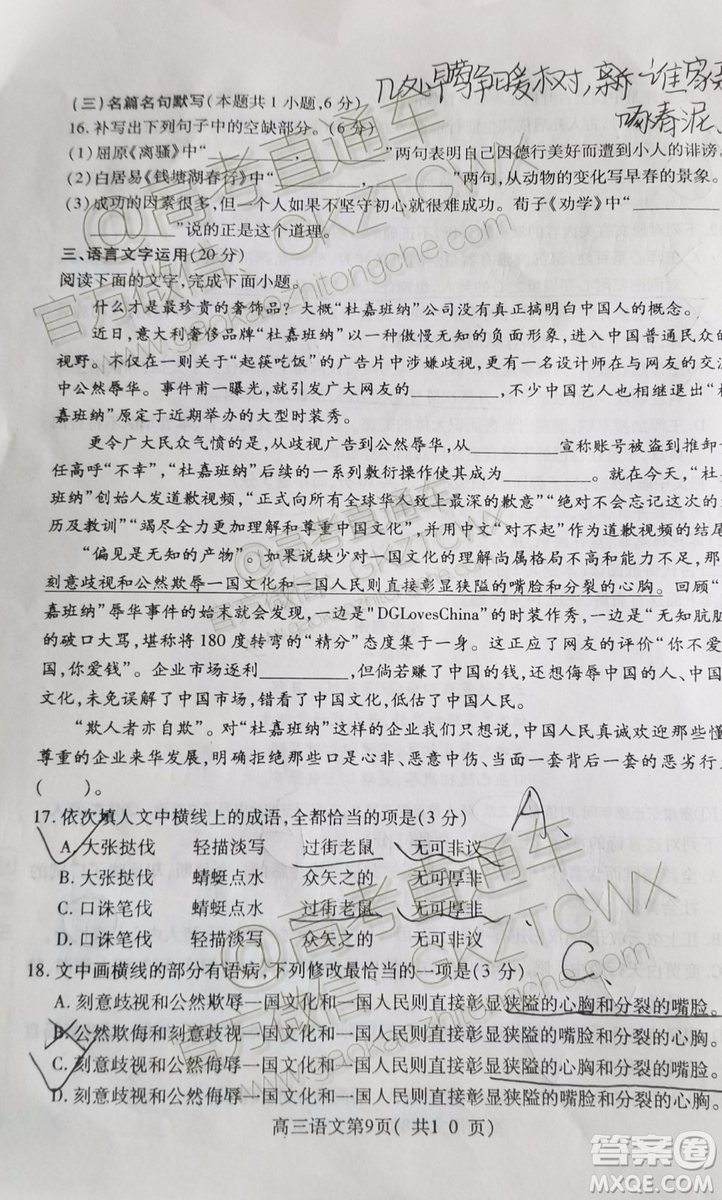 几处早莺争暖树,新 谁家
啄春泥
(三)名篇名句默写(本题共1小题,6分)
16.补写出下列句子中的空缺部分。(6分)
(1)屈原《离骚》中“________,________”两句表明自己因德行美好而遭到小人的诽谤
(2)白居易《钱塘湖春行》中“________,________”两句,从动物的变化写早春的景象。
(3)成功的因素很多,但一个人如果不坚守初心就很难成功。荀子《劝学》中“________
________”说的正是这个道理。
三、语言文字运用(20分)
阅读下面的文字,完成下面小题。
什么才是最珍贵的奢饰品?大概“杜嘉班纳”公司没有真正搞明白中国人的概念。
近日,意大利奢侈品牌“杜嘉班纳”以一种傲慢无知的负面形象,进入中国普通民众的
视野。不仅在一则关于“起筷吃饭”的广告片中涉嫌歧视,更有一名设计师在与网友的交流
中公然辱华。事件甫一曝光,就引发广大网友的________,不少中国艺人也相继退出“
嘉班纳”原定于近期举办的大型时装秀。
更令广大民众气愤的是,从歧视广告到公然辱华,从________宣称账号被盗到
任高呼“不幸”,“杜嘉班纳”后续的一系列敷衍操作使其成为________。就在今天,“
班纳”创始人发道歉视频,“正式向所有全球华人致上最深的歉意”“绝对不会忘记这次的
历及教训”“竭尽全力更加理解和尊重中国文化”,并用中文“对不起”作为道歉视频的结尾
“偏见是无知的产物”。如果说缺少对一国文化的理解尚属格局不高和能力不足,那
刻意歧视和公然欺辱一国文化和一国人民则直接彰显狭隘的嘴脸和分裂的心胸。回顾“
嘉班纳”辱华事件的始末就会发现,一边是“DGLovesChina”的时装作秀,一边是“无知肮脏
的破口大骂,堪称将180度转弯的“精分”态度集于一身。这正应了网友的评价“你不
国,你爱钱”。企业市场逐利________,但倘若赚了中国的钱,还想侮辱中国的人、中国
文化,未免误解了中国市场,错看了中国文化,低估了中国人民。
“欺人者亦自欺”。对“杜嘉班纳”这样的企业我们只想说,中国人民真诚欢迎那些懂
尊重的企业来华发展,明确拒绝那些心口不一、恶意中伤、当面一套背后一套的恶劣行
( )。
17.依次填入文中横线上的成语,全都恰当的项是(3分)
A.
A. 大张挞伐 轻描淡写 过街老鼠 无可非议
B. 大张挞伐 蜻蜓点水 众矢之的 无可厚非
C. 口诛笔伐 蜻蜓点水 过街老鼠 无可厚非
D. 口诛笔伐 轻描淡写 众矢之的 无可非议
18.文中画横线的部分有语病,下列修改最恰当的一项是(3分)
C.
A. 刻意歧视和公然欺辱一国文化和一国人民则直接彰显狭隘的心胸和分裂的嘴脸。
B. 公然欺侮和刻意歧视一国文化和一国人民则直接彰显狭隘的嘴脸和分裂的心胸。
C. 刻意歧视和公然侮辱一国文化和一国人民则直接彰显狭隘的心胸和分裂的嘴脸。
D. 刻意歧视和公然侮辱一国文化和一国人民则直接彰显狭隘的嘴脸和分裂的心胸。
高三语文第9页( 共1 0 页)
@高考直通车
官方微信:GKZTCWX
www.gaokaozhitongche.com
@高考直通车
官方微信:GKZTCWX
www.gaokaozhitongche.com
答案圈
MXQE.COM